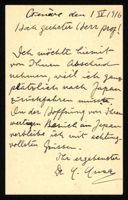 den 1 IV 1916
Hoch geehrter Herr Prof!
Ich möchte hiermit
von Ihnen Abschied
nehmen, weil ich ganz
plötzlich nach Japan
zurückfahren musste.
In der Hoffnung von Ihrem
werten Besuch in Japan
verbleibe ich mit achtungs-
vollsten Grüssen.
Ihr ergebenster
Dr. Y.